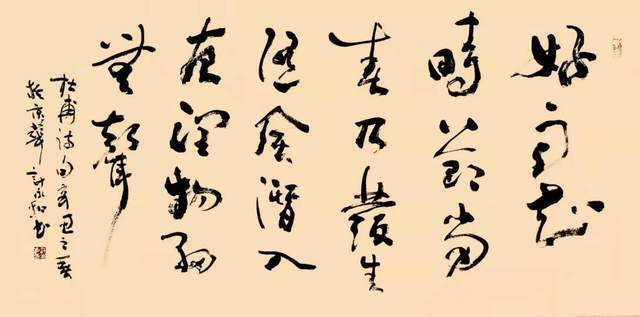 好雨知
時節當
春乃發生
隨風潛入
夜潤物細
無聲
杜甫詩句